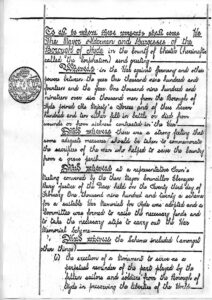 To all to whom these presents shall come We
The Mayor Aldermen and Burgesses of the
Borough of Hyde in the County of Chester (hereinafter
called "the Corporation") send greeting
Whereas in the War against Germany and other
powers between the year One thousand nine hundred and
fourteen and the year One thousand nine hundred and
nineteen over six thousand men from the Borough of
Hyde joined His Majesty's Forces and of these seven
hundred and ten either fell in battle or died from
wounds or from sickness contracted in the War
And whereas there was a strong feeling that
some adequate measures should be taken to commemorate
the sacrifices of the men who helped to save the Country
from a grave peril
And whereas at a representative Town's
Meeting convened by the then Mayor Councillor Ebenezer
Henry Justice of the Peace held on the twenty third day of
February One thousand nine hundred and twenty a scheme
for a suitable War Memorial for Hyde was adopted and a
Committee was formed to raise the necessary funds and
to take the necessary steps to carry out the War
Memorial Scheme
And whereas the Scheme included (amongst
other things)
(1) the erection of a Monument to serve as a
perpetual reminder of the part played by the
fallen sailors and soldiers from the Borough of
Hyde in preserving the liberties of the World